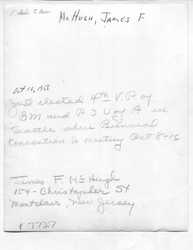 McHUGH, JAMES F.
Oct 10, 1952
Just elected 4th V.P. of
BM and P I U of A in
Seattle where Biennial
Convention is meeting Oct 8-16
James F. McHugh
154 - Christopher St
Montclair, New Jersey
P 7727